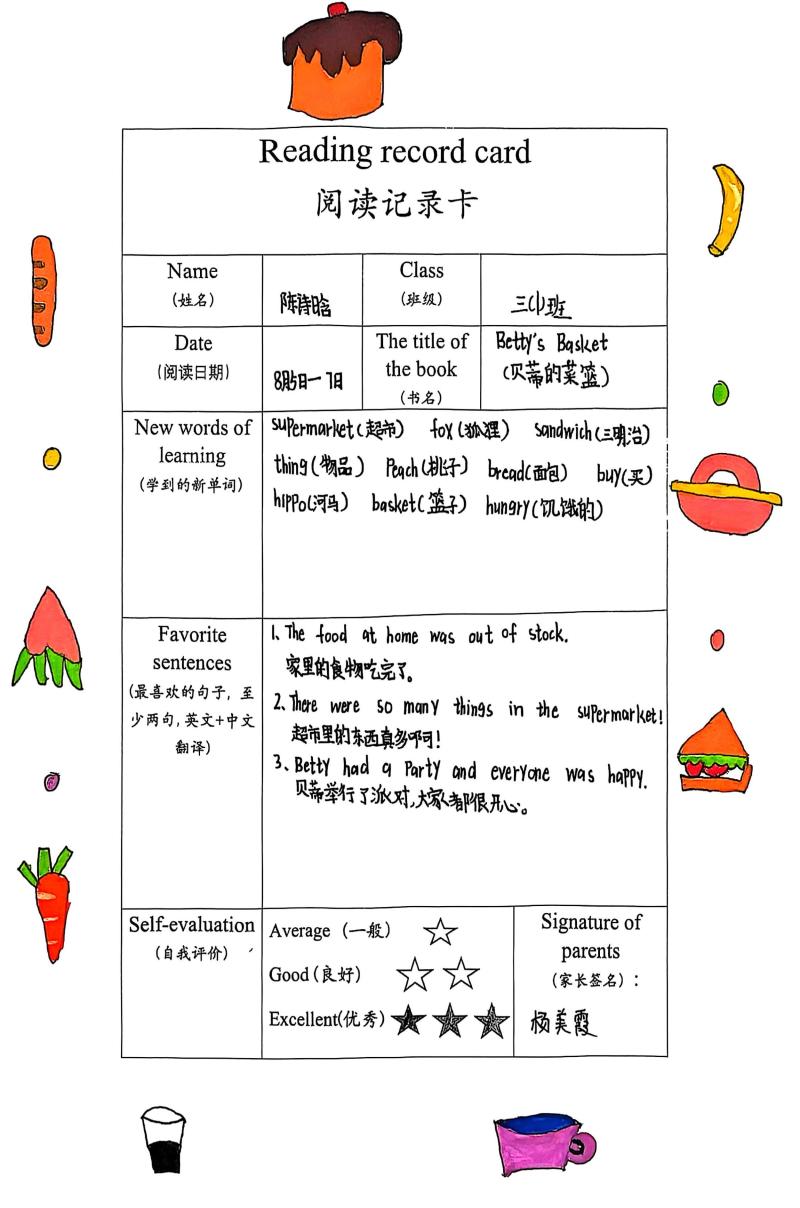 Reading record card
阅读记录卡
Name
(姓名)
陈诗晗
Class
(班级)
三(1)班
Date
(阅读日期)
8月5日一7日
The title of
the book
(书名)
Betty's Basket
(贝蒂的菜篮)
New words of
learning
(学到的新单词)
supermarket(超市) fox(狐狸) sandwich(三明治)
thing(物品) Peach(桃子) bread(面包) buy(买)
hippo(河马) basket(篮子) hungry(饥饿的)
Favorite
sentences
(最喜欢的句子，至
少两句，英文+中文
翻译)
1、The food at home was out of stock.
家里的食物吃完了。
2、There were so many things in the supermarket!
超市里的东西真多啊!
3、Betty had a Party and everyone was happy.
贝蒂举行了派对,大家都很开心。
Self-evaluation
(自我评价)
Average (一般)
Good(良好)
Excellent(优秀)
Signature of
parents
(家长签名)：
杨美霞